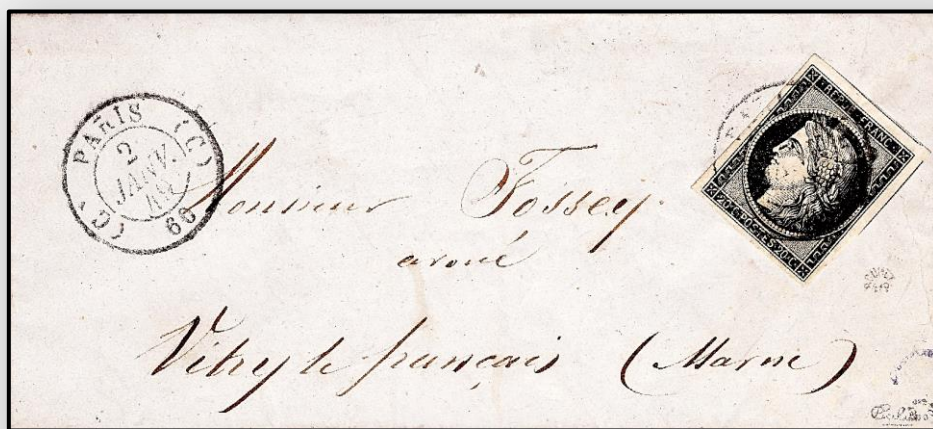 PARIS (C)
2
JANV.
49
(C) 60
REPUB. FRANC.
20 C. POSTES 20 C.
Monsieur Fossey
avoué
Vitry le français (Marne)